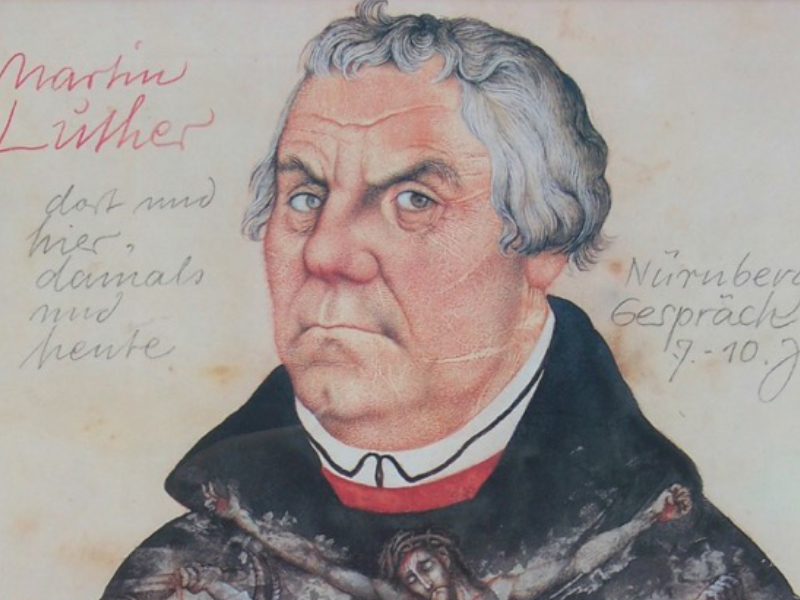 Martin
Luther
dort und
hier,
damals
und
heute
Nürnberg
Gespräch
7.-10. J